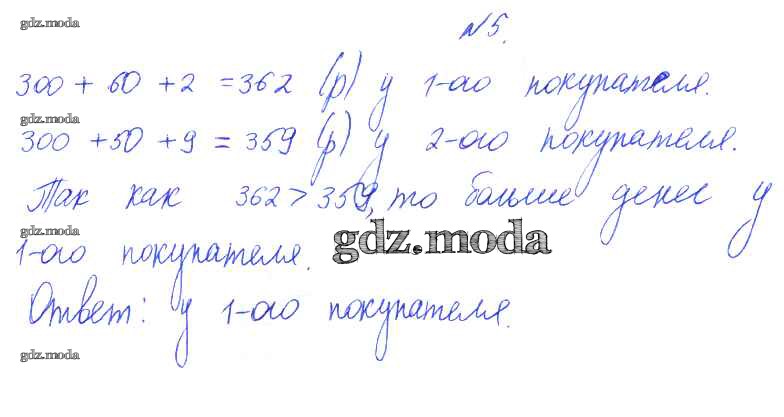 gdz.moda
№5.
300 + 60 + 2 = 362 (р) у 1-ого покупателя.
gdz.moda
300 + 50 + 9 = 359 (р) у 2-ого покупателя.
Так как 362 > 359, то больше денег у
gdz.moda
1-ого покупателя. gdz.moda
Ответ: у 1-ого покупателя.
gdz.moda